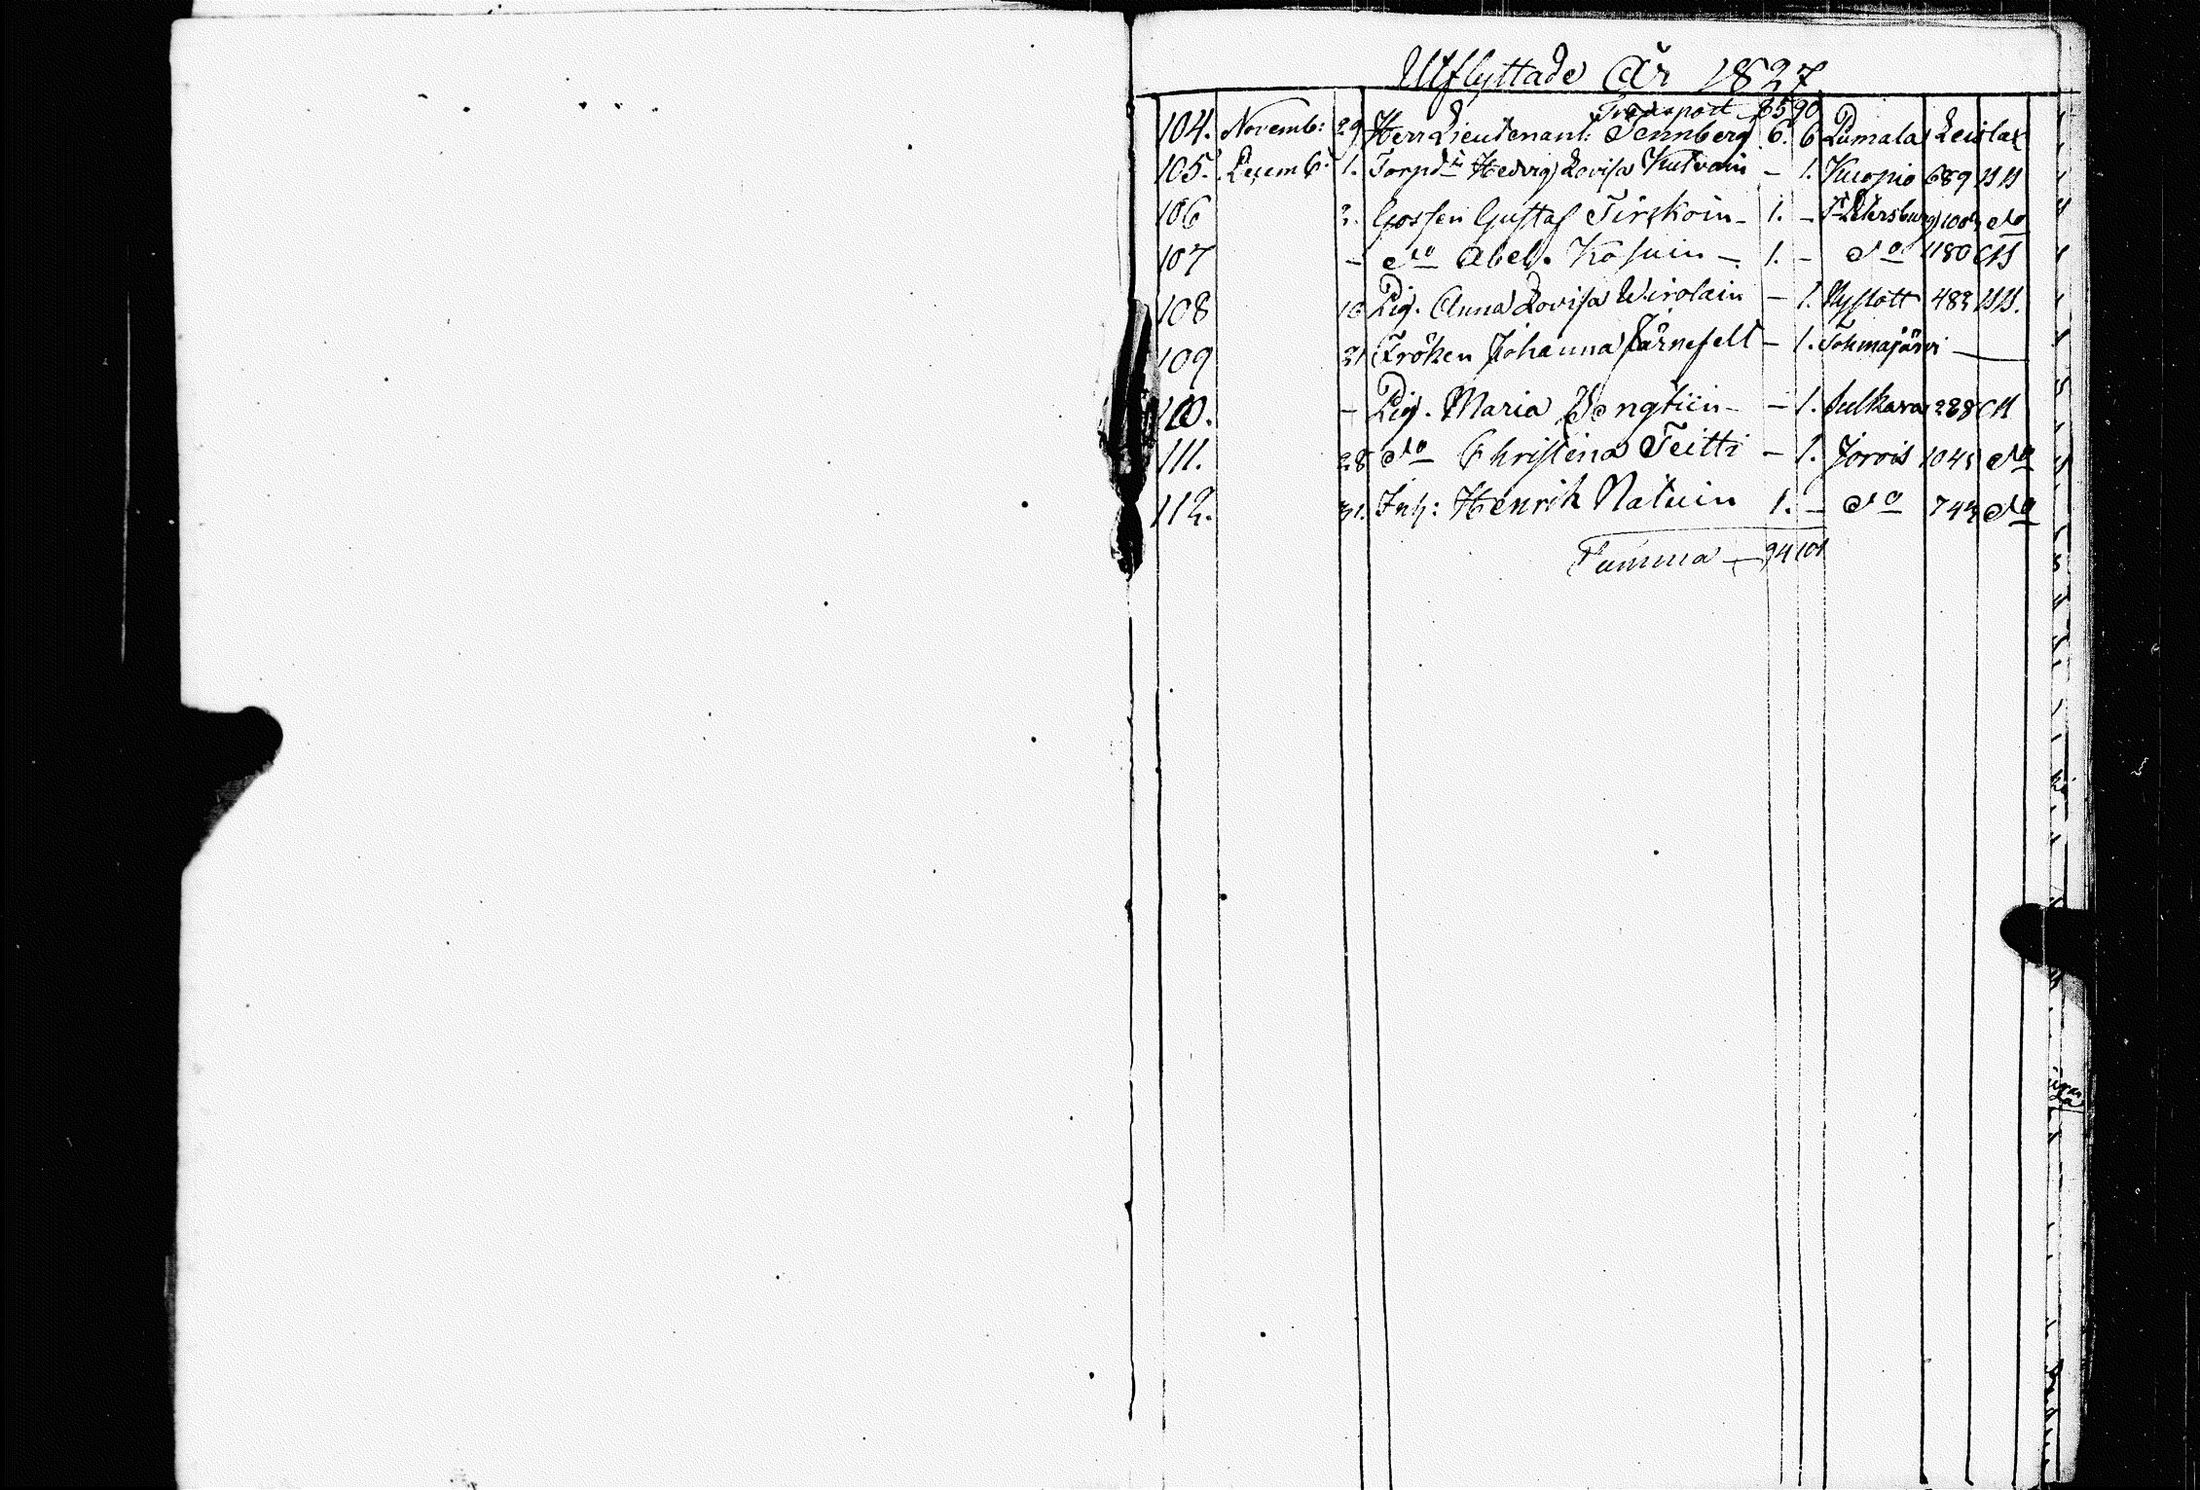 Utflyttade År 1827
Transport 85 90
104. Novemb: 29 Herr Lieutenant: Tennberg 6. 6 Pumala Leislax
105. Decemb: 1. Torpd:r Hedvig Lovisa Kutvain – 1. Kuopio 689
106 2. Gossen Gustaf Tirskoin – 1. – St Petersburg 1003 do
107 – do Abel. Kosuin – 1. – do 1180
108 16 Pig. Anna Lovisa Wirolain – 1. Nyslott 483
109 21 Fröken Johanna Järnefelt – 1. Tohmajärvi —
110. – Pig. Maria Pongtiin – – 1. Julkava 288
111. 28 do Christina Teitti – 1. Jorois 1045 do
112. 31. Inh: Henrik Natuin 1. – do 743 do
Summa — 94 101